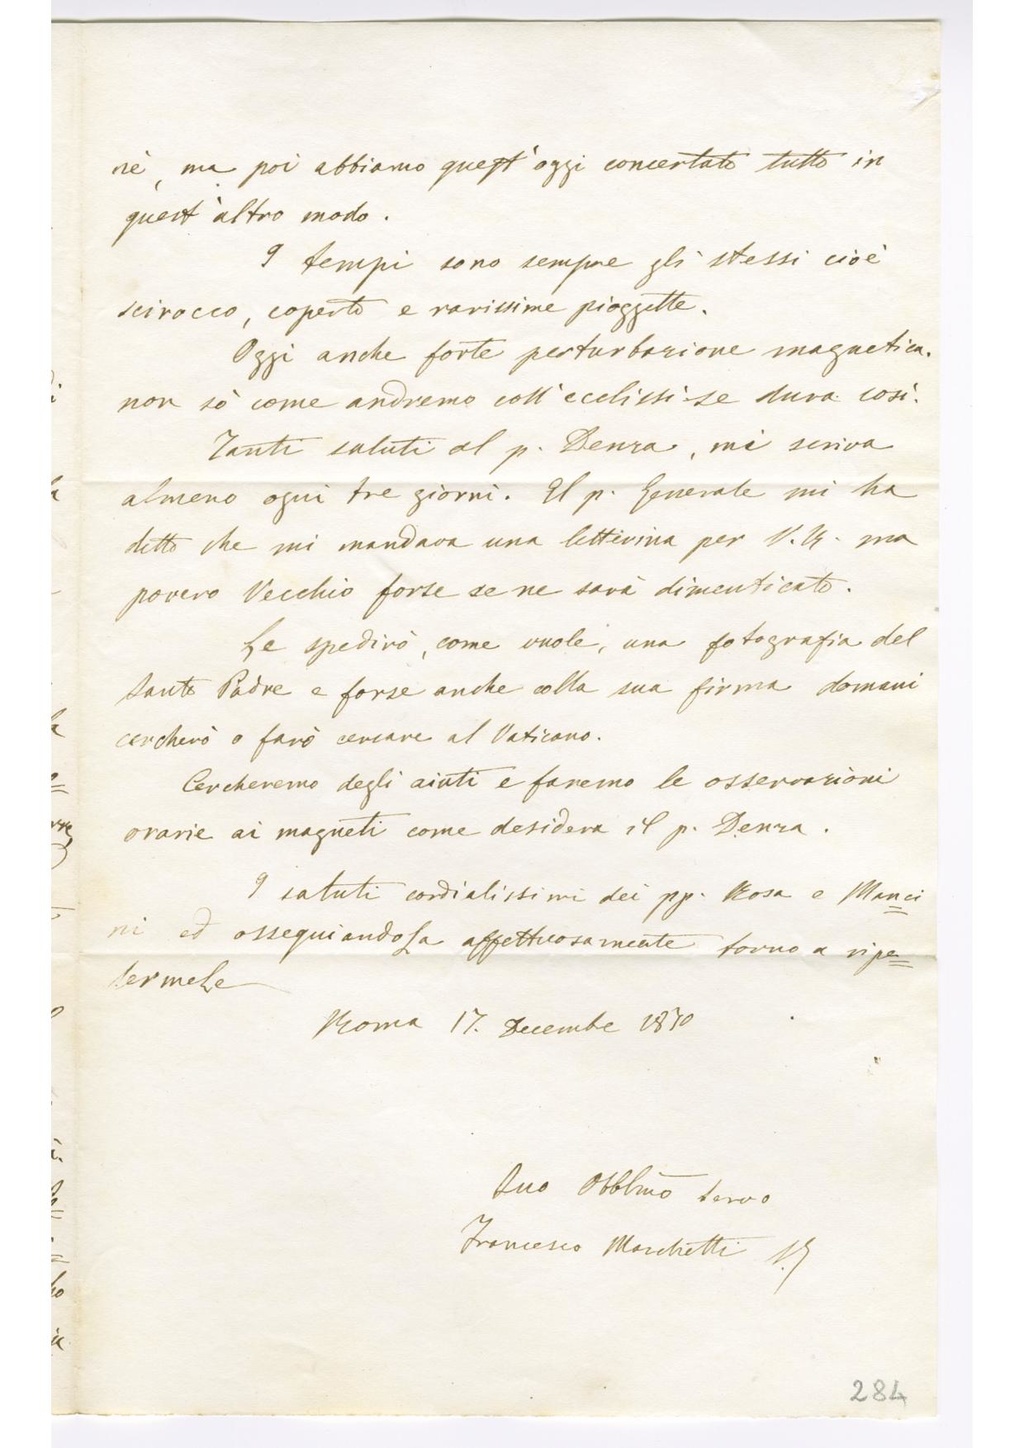 nè, ma poi abbiamo quest'oggi concertato tutto in
quest'altro modo.
I tempi sono sempre gli stessi cioè
scirocco, coperto e rarissime pioggette.
Oggi anche forte perturbazione magnetica.
non sò come andremo coll'ecclissi se dura così.
Tanti saluti al p. Denza, mi scriva
almeno ogni tre giorni. Il p. Generale mi ha
detto che mi mandava una letterina per V.R. ma
povero Vecchio forse se ne sarà dimenticato.
Le spedirò, come vuole, una fotografia del
Santo Padre e forse anche colla sua firma domani
cercherò o farò cercare al Vaticano.
Cercheremo degli aiuti e faremo le osservazioni
orarie ai magneti come desidera il p. Denza.
I saluti cordialissimi dei pp. Rosa e Manci
ni ed ossequiandoLa affettuosamente torno a ripe=
termeLe
Roma 17. Decembe 1870
Suo Obblmo servo
Francesco Marchetti S.J
284